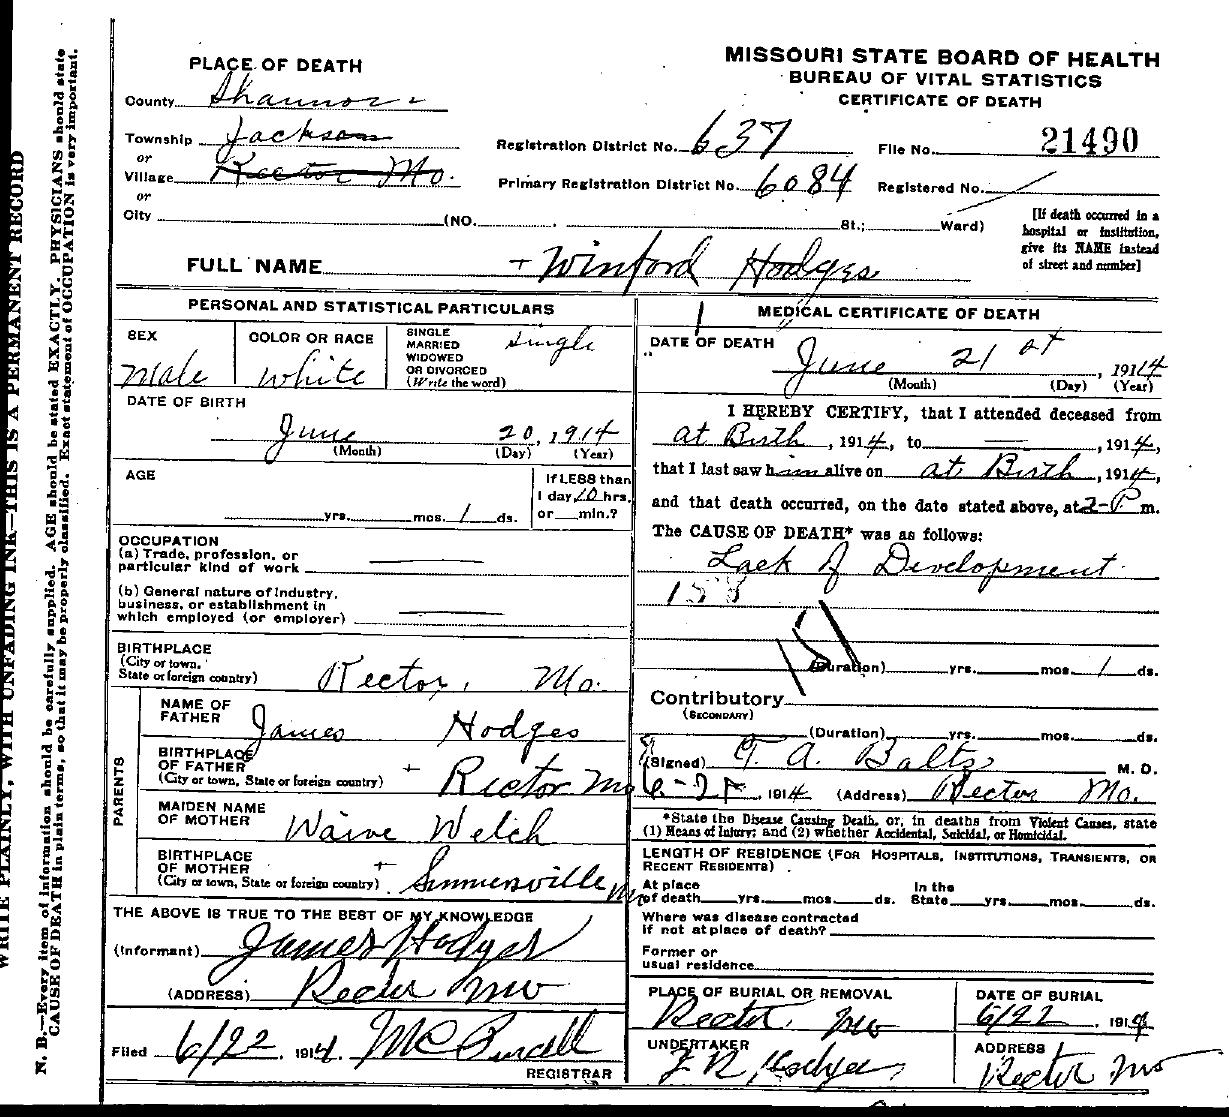 MISSOURI STATE BOARD OF HEALTH
BUREAU OF VITAL STATISTICS
CERTIFICATE OF DEATH
PLACE OF DEATH
County Shannon
Township Jackson
or
Village Rector Mo.
or
City (NO. St.; Ward)
Registration District No. 637
File No. 21490
Primary Registration District No. 6084
Registered No.
[If death occurred in a
hospital or institution,
give its NAME instead
of street and number]
FULL NAME + Winford Hodges
PERSONAL AND STATISTICAL PARTICULARS
SEX
Male
COLOR OR RACE
White
SINGLE
MARRIED
WIDOWED
OR DIVORCED
(Write the word)
Single
DATE OF BIRTH
June 20, 1914
(Month) (Day) (Year)
AGE
yrs. mos. 1 ds.
If LESS than
1 day 10 hrs.
or min.?
OCCUPATION
(a) Trade, profession, or
particular kind of work
(b) General nature of industry,
business, or establishment in
which employed (or employer)
BIRTHPLACE
(City or town,
State or foreign country)
Rector, Mo.
PARENTS
NAME OF
FATHER
James Hodges
BIRTHPLACE
OF FATHER
(City or town, State or foreign country)
+ Rector Mo
MAIDEN NAME
OF MOTHER
Waive Welch
BIRTHPLACE
OF MOTHER
(City or town, State or foreign country)
+ Summersville Mo
THE ABOVE IS TRUE TO THE BEST OF MY KNOWLEDGE
(Informant) James Hodges
(ADDRESS) Rector Mo
Filed 6/22, 1914.
REGISTRAR
MEDICAL CERTIFICATE OF DEATH
DATE OF DEATH
June 21 st, 1914
(Month) (Day) (Year)
I HEREBY CERTIFY, that I attended deceased from
at Birth, 1914, to — , 1914,
that I last saw him alive on at Birth, 1914,
and that death occurred, on the date stated above, at 2-P. m.
The CAUSE OF DEATH* was as follows:
Lack of Development
158
151
(Duration) yrs. mos. 1 ds.
Contributory
(SECONDARY)
(Duration) yrs. mos. ds.
(Signed) T. A. Baltz M. D.
, 1914 (Address) Rector Mo.
*State the Disease Causing Death, or, in deaths from Violent Causes, state
(1) Means of Injury; and (2) whether Accidental, Suicidal, or Homicidal.
LENGTH OF RESIDENCE (FOR HOSPITALS, INSTITUTIONS, TRANSIENTS, OR
RECENT RESIDENTS)
At place
of death yrs. mos. ds.
In the
State yrs. mos. ds.
Where was disease contracted
if not at place of death?
Former or
usual residence
PLACE OF BURIAL OR REMOVAL
Rector, Mo
DATE OF BURIAL
6/22, 1914
UNDERTAKER
J R Hodges
ADDRESS
Rector Mo
WRITE PLAINLY, WITH UNFADING INK—THIS IS A PERMANENT RECORD
N. B.—Every item of information should be carefully supplied. AGE should be stated EXACTLY. PHYSICIANS should state
CAUSE OF DEATH in plain terms, so that it may be properly classified. Exact statement of OCCUPATION is very important.